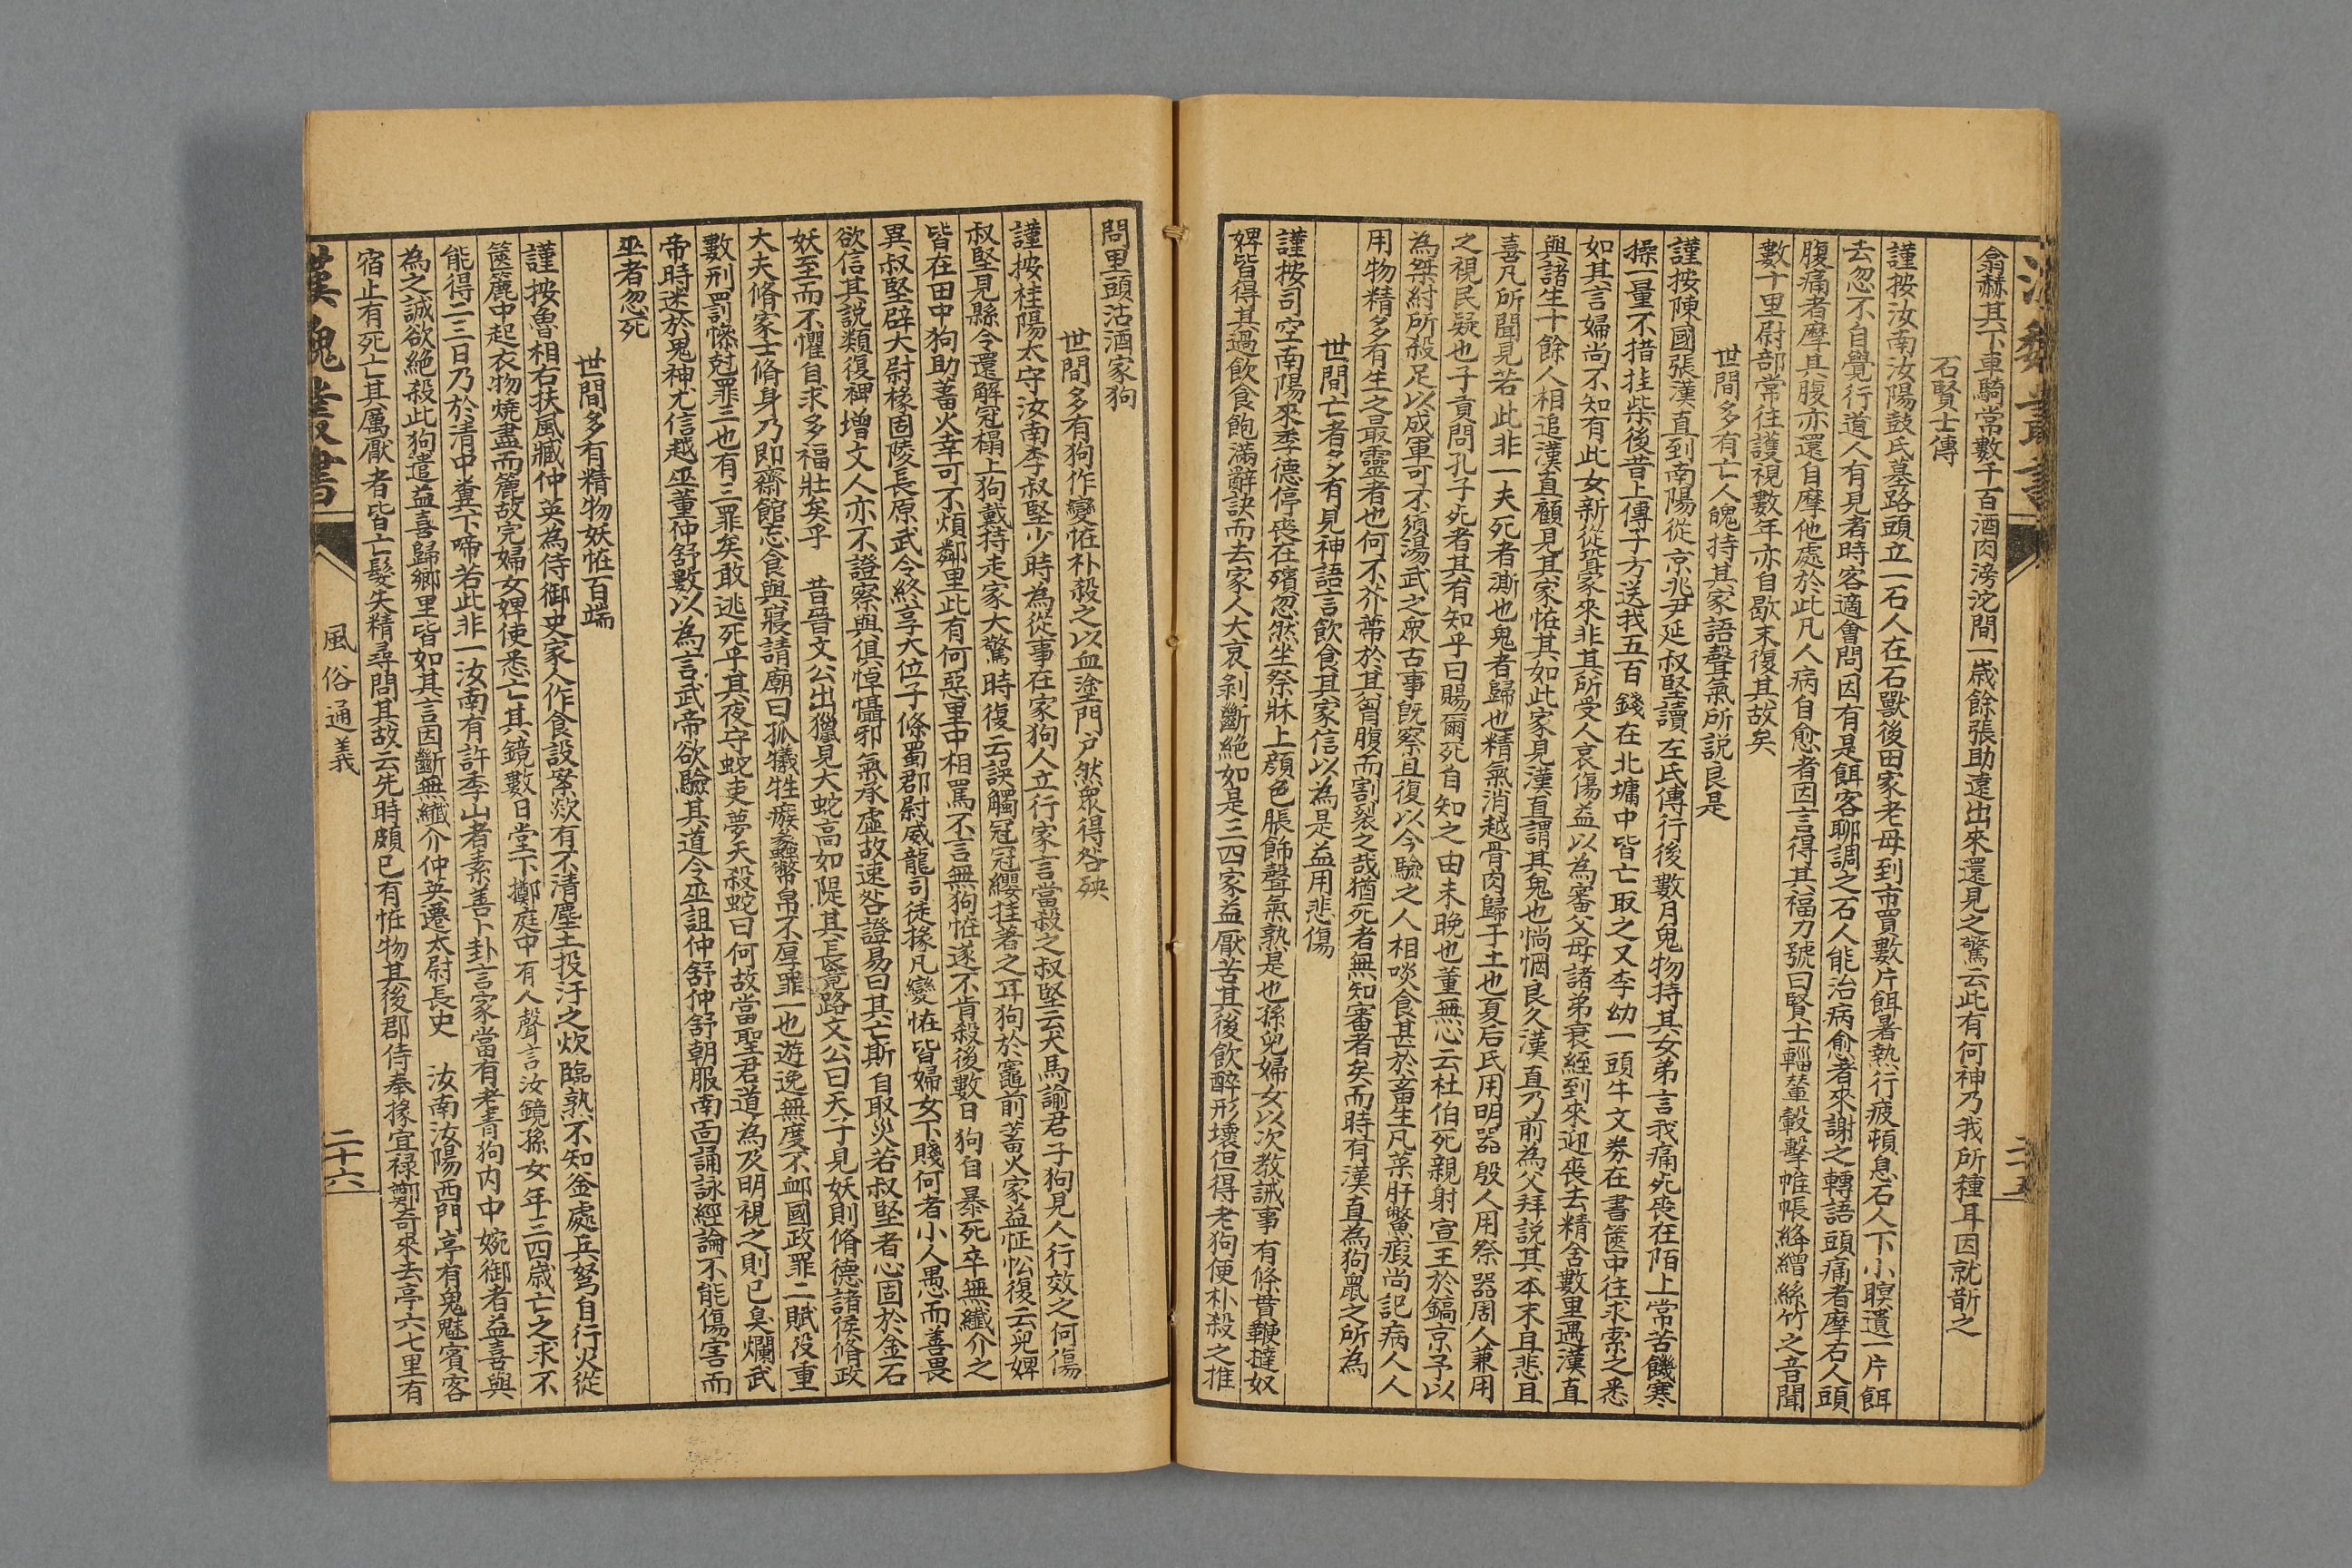 翕赫其下車騎常數千百酒肉滂沱間一歲餘張助遠出來還見之驚云此有何神乃我所種耳因就斮之
石賢士傳
謹按汝南汝陽鼓氏墓路頭立一石人在石獸後田家老母到市買數片餌暑熱行疲頓息石人下小瞑遺一片餌
去忽不自覺行道人有見者時客適會問因有是餌客聊調之石人能治病愈者來謝之轉語頭痛者摩石人頭
腹痛者摩其腹亦還自摩他處於此凡人病自愈者因言得其福力號曰賢士輜輦轂擊帷帳絳繒絲竹之音聞
數十里尉部常往護視數年亦自歇末復其故矣
世間多有亡人魄持其家語聲氣所說良是
謹按陳國張漢直到南陽從京兆尹延叔堅讀左氏傳行後數月鬼物持其女弟言我痛死喪在陌上常苦饑寒
操一量不措挂柴後昔上傳子方送我五百錢在北墉中皆亡取之又李幼一頭牛文券在書篋中往求索之悉
如其言婦尚不知有此女新從聟家來非其所受人哀傷益以為審父母諸弟衰絰到來迎喪去精舍數里遇漢直
與諸生十餘人相追漢直顧見其家怪其如此家見漢直謂其鬼也惝惘良久漢直乃前為父拜說其本末且悲且
喜凡所聞見若此非一夫死者澌也鬼者歸也精氣消越骨肉歸于土也夏后氏用明器殷人用祭器周人兼用
之視民疑也子貢問孔子死者其有知乎曰賜爾死自知之由未晚也董無心云杜伯死親射宣王於鎬京予以
為桀紂所殺足以成軍可不須湯武之眾古事既察且復以今驗之人相啖食甚於畜生凡菜肝鱉瘕尚記病人人
用物精多有生之最靈者也何不芥蔕於其胷腹而割裂之哉猶死者無知審者矣而時有漢直為狗鼠之所為
世間亡者多有見神語言飲食其家信以為是益用悲傷
謹按司空南陽來季德停喪在殯忽然坐祭牀上顏色服飾聲氣熟是也孫兒婦女以次教誡事有條貫鞭撻奴
婢皆得其過飲食飽滿辭訣而去家人大哀剝斷絕如是三四家益厭苦其後飲醉形壞但得老狗便朴殺之推
問里頭沽酒家狗
世間多有狗作變怪朴殺之以血塗門戶然眾得咎殃
謹按桂陽太守汝南李叔堅少時為從事在家狗人立行家言當殺之叔堅云犬馬諭君子狗見人行效之何傷
叔堅見縣令還解冠榻上狗戴持走家大驚時復云誤觸冠冠纓挂著之耳狗於竈前蓄火家益怔忪復云兒婢
皆在田中狗助蓄火幸可不煩鄰里此有何惡里中相罵不言無狗怪遂不肯殺後數日狗自暴死卒無纖介之
異叔堅辟大尉掾固陵長原武令終享大位子條蜀郡尉威龍司徒掾凡變怪皆婦女下賤何者小人愚而善畏
欲信其說類復裨增文人亦不證察與俱悼懾邪氣承虛故速咎證易曰其亡斯自取災若叔堅者心固於金石
妖至而不懼自求多福壯矣乎　昔晉文公出獵見大蛇高如隄其長竟路文公曰天子見妖則脩德諸侯脩政
大夫脩家士脩身乃即齋館忘食與寢請廟曰孤犧牲瘯蠡幣帛不厚罪一也遊逸無度不卹國政罪二賦役重
數刑罰慘尅罪三也有三罪矣敢逃死乎其夜守蛇吏夢天殺蛇曰何故當聖君道為及明視之則已臭爛武
帝時迷於鬼神尤信越巫董仲舒數以為言武帝欲驗其道令巫詛仲舒仲舒朝服南面誦詠經論不能傷害而
巫者忽死
世間多有精物妖怪百端
謹按魯相右扶風臧仲英為侍御史家人作食設案欻有不清塵土投汙之炊臨熟不知釜處兵弩自行火從
篋簏中起衣物燒盡而簏故完婦女婢使悉亡其鏡數日堂下擲庭中有人聲言汝鏡孫女年三四歲亡之求不
能得二三日乃於清中糞下啼若此非一汝南有許季山者素善卜卦言家當有老青狗內中婉御者益喜與
為之誠欲絕殺此狗遣益喜歸鄉里皆如其言因斷無纖介仲英遷太尉長史　汝南汝陽西門亭有鬼魅賓客
宿止有死亡其厲厭者皆亡髮失精尋問其故云先時頗已有怪物其後郡侍奉掾宜祿鄭奇來去亭六七里有
漢魏叢書
風俗通義
二十六